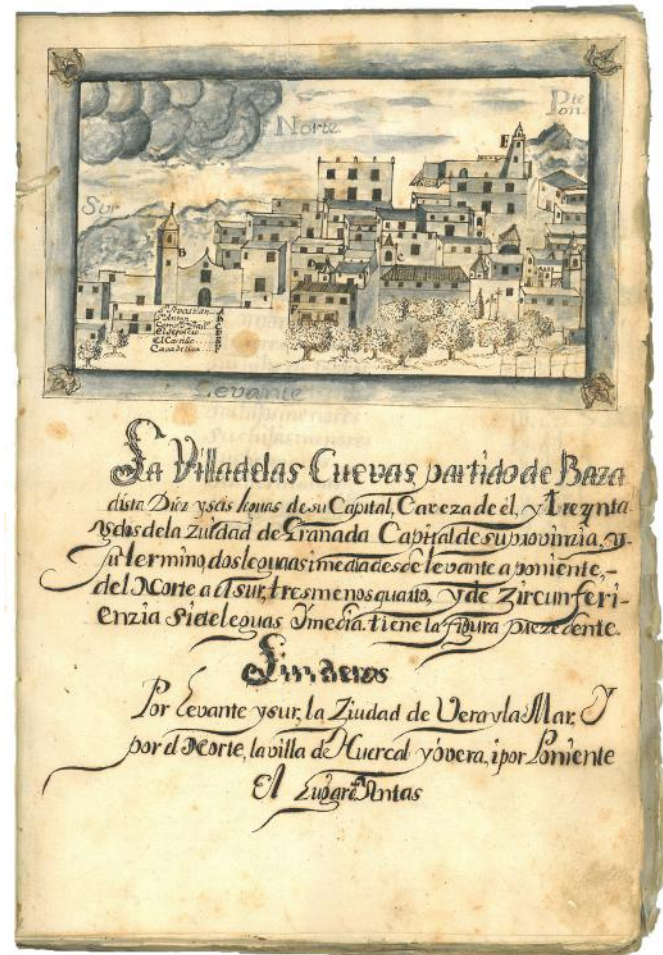 Norte
Pte
on.
Sur
Sn. Sevastian A
Sn. Anton B
C
D
El Castillo E
F
Levante
La Villa de las Cuevas, partido de Baza
dista Diez y seis leguas de su Capital, Caveza de él, y treynta
y dos de la Ziudad de Granada Capital de su provinzia, y
su termino, dos leguas i media desde levante a poniente,-
del Norte a el sur, tres menos quarto, y de zircunferi-
enzia siete leguas y media. tiene la figura prezedente.
Linderos
Por Levante y sur, la Ziudad de Vera y la Mar, Y
por el Norte, la villa de Huercal y óvera, i por Poniente
El Lugar de Antas